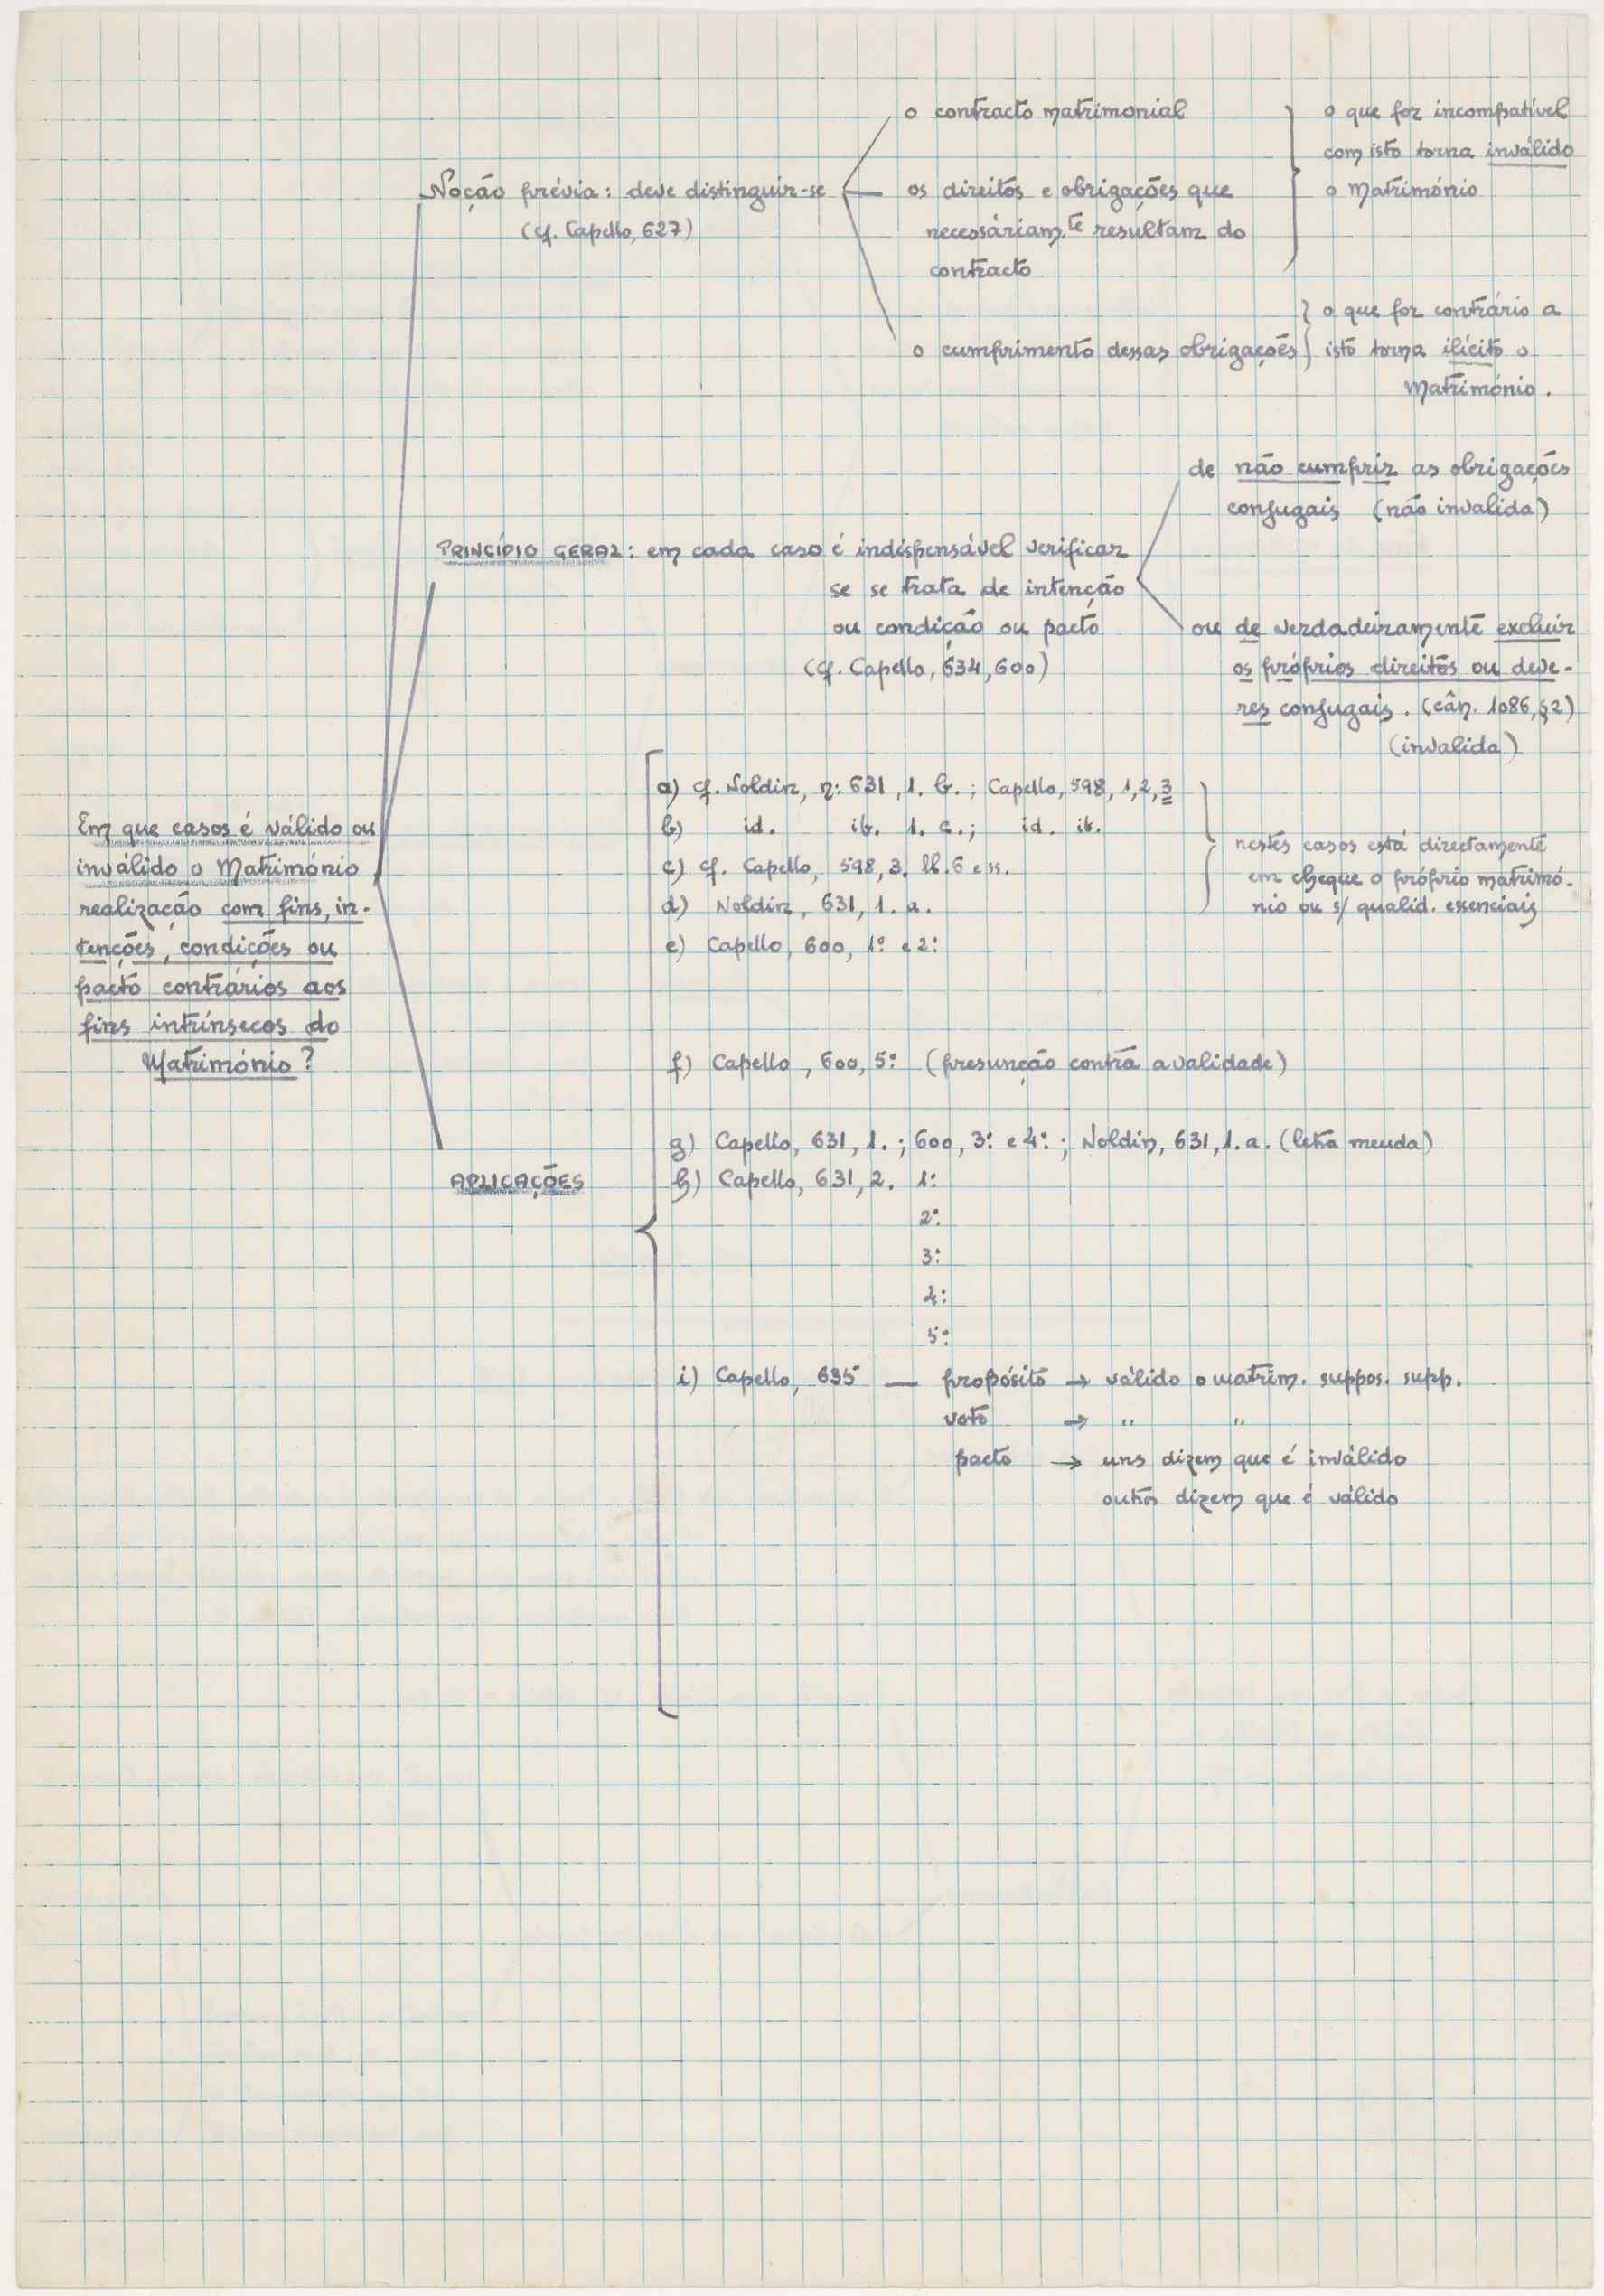 Noção prévia: deve distinguir-se
(cf. Capello, 627)
o contracto matrimonial
os direitos e obrigações que
necessáriam.te resultam do
contracto
o que for incompatível
com isto torna inválido
o Matrimónio
o cumprimento dessas obrigações
o que for contrário a
isto torna ilícito o
Matrimónio.
PRINCÍPIO GERAL: em cada caso é indispensável verificar
se se trata de intenção
ou condição ou pacto
(cf. Capello, 634, 600)
de não cumprir as obrigações
conjugais (não invalida)
ou de verdadeiramente excluir
os próprios direitos ou deve-
res conjugais. (cân. 1086, §2)
(invalida)
Em que casos é válido ou
inválido o Matrimónio
realização com fins, in-
tenções, condições ou
pacto contrários aos
fins intrínsecos do
Matrimónio?
APLICAÇÕES
a) cf. Noldin, n: 631, 1. b.; Capello, 598, 1, 2, 3
b) id. ib. 1. c.; id. ib.
c) cf. Capello, 598, 3. ll. 6 e ss.
d) Noldin, 631, 1. a.
e) Capello, 600, 1º e 2º
nestes casos está directamente
em cheque o próprio matrimó-
nio ou s/ qualid. essenciais
f) Capello, 600, 5º (presunção contra a validade)
g) Capello, 631, 1.; 600, 3º e 4º; Noldin, 631, 1. a. (letra meuda)
h) Capello, 631, 2. 1º
2º
3º
4º
5º
i) Capello, 635 — propósito → válido o matrim. suppos. supp.
voto → " "
pacto → uns dizem que é inválido
outros dizem que é válido